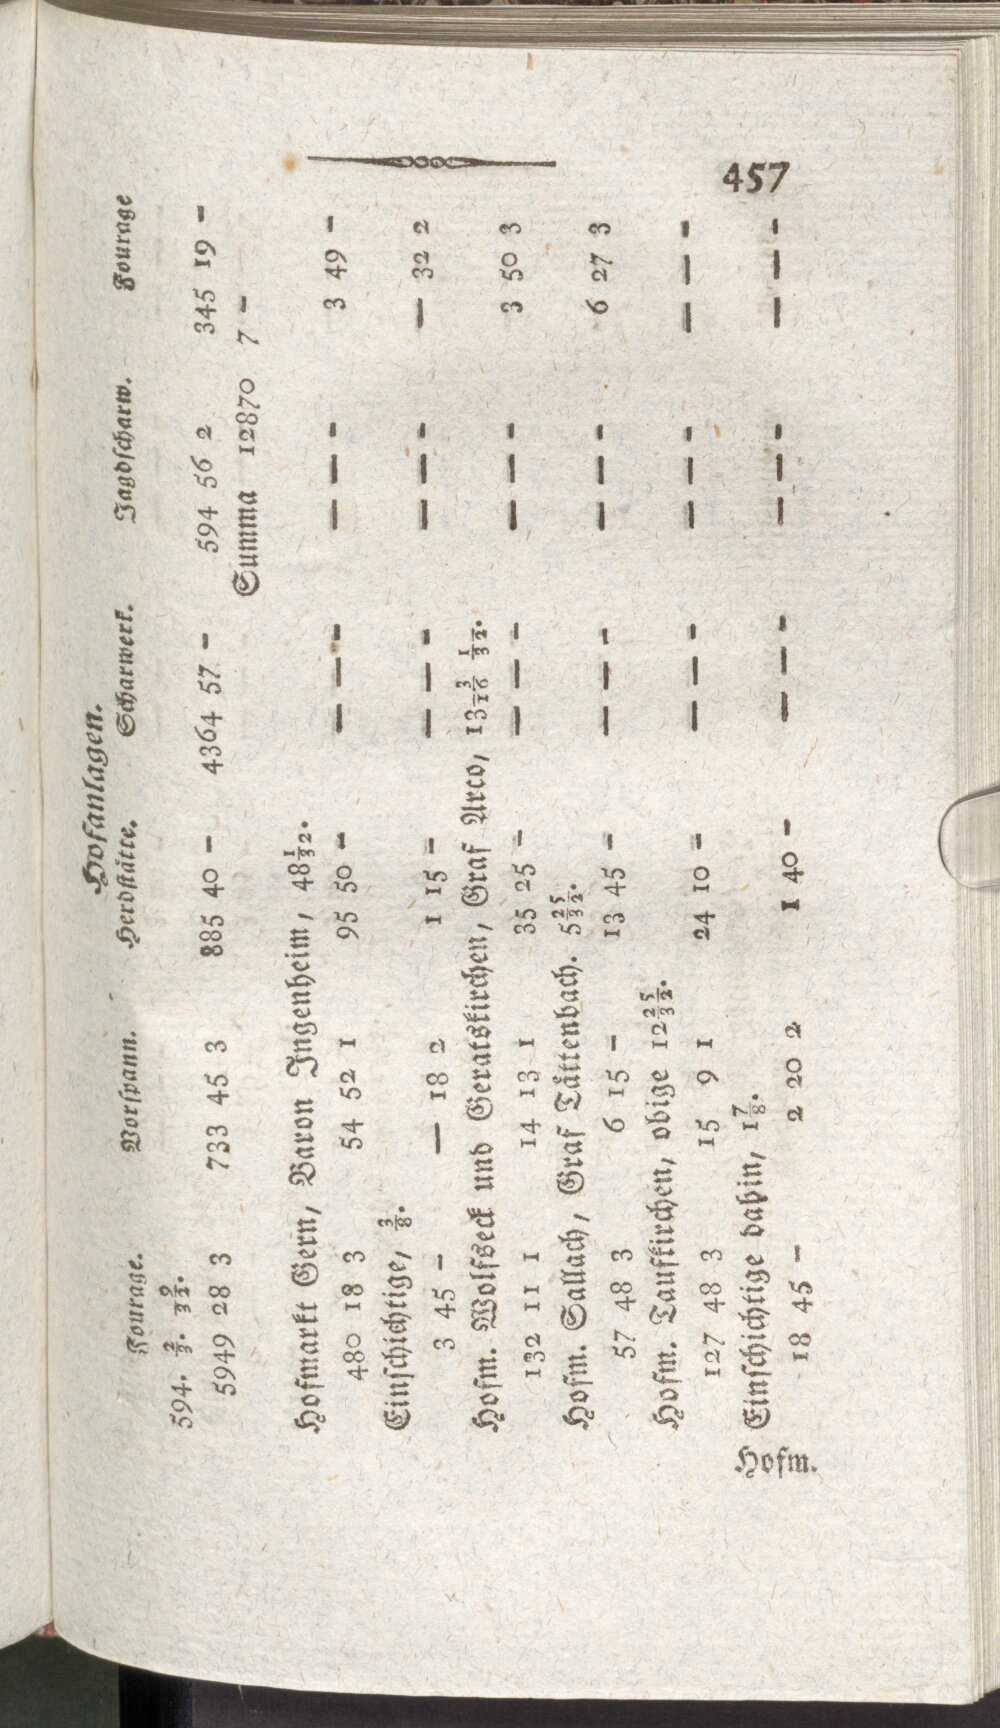 457
Hofanlagen.
Fourage. Vorspann. Herdstätte. Scharwerk. Jagdscharw. Fourage
594. 2/9. 9/32.
5949 28 3 733 45 3 885 40 — 4364 57 — 594 56 2 345 19 —
Summa 12870 7 —
Hofmarkt Gern, Baron Ingenheim, 48 1/32.
480 18 3 54 52 1 95 50 — — — — — — — 3 49 —
Einschichtige, 3/8.
3 45 — — 18 2 1 15 — — — — — — — — 32 2
Hofm. Wolfseck und Geratskirchen, Graf Arco, 13 3/16 1/32.
132 11 1 14 13 1 35 25 — — — — — — — 3 50 3
Hofm. Sallach, Graf Tättenbach. 5 25/32.
57 48 3 6 15 — 13 45 — — — — — — — 6 27 3
Hofm. Taufkirchen, obige 12 25/32.
127 48 3 15 9 1 24 10 — — — — — — — — — —
Einschichtige dahin, 1 7/8.
18 45 — 2 20 2 1 40 — — — — — — — — — —
Hofm.